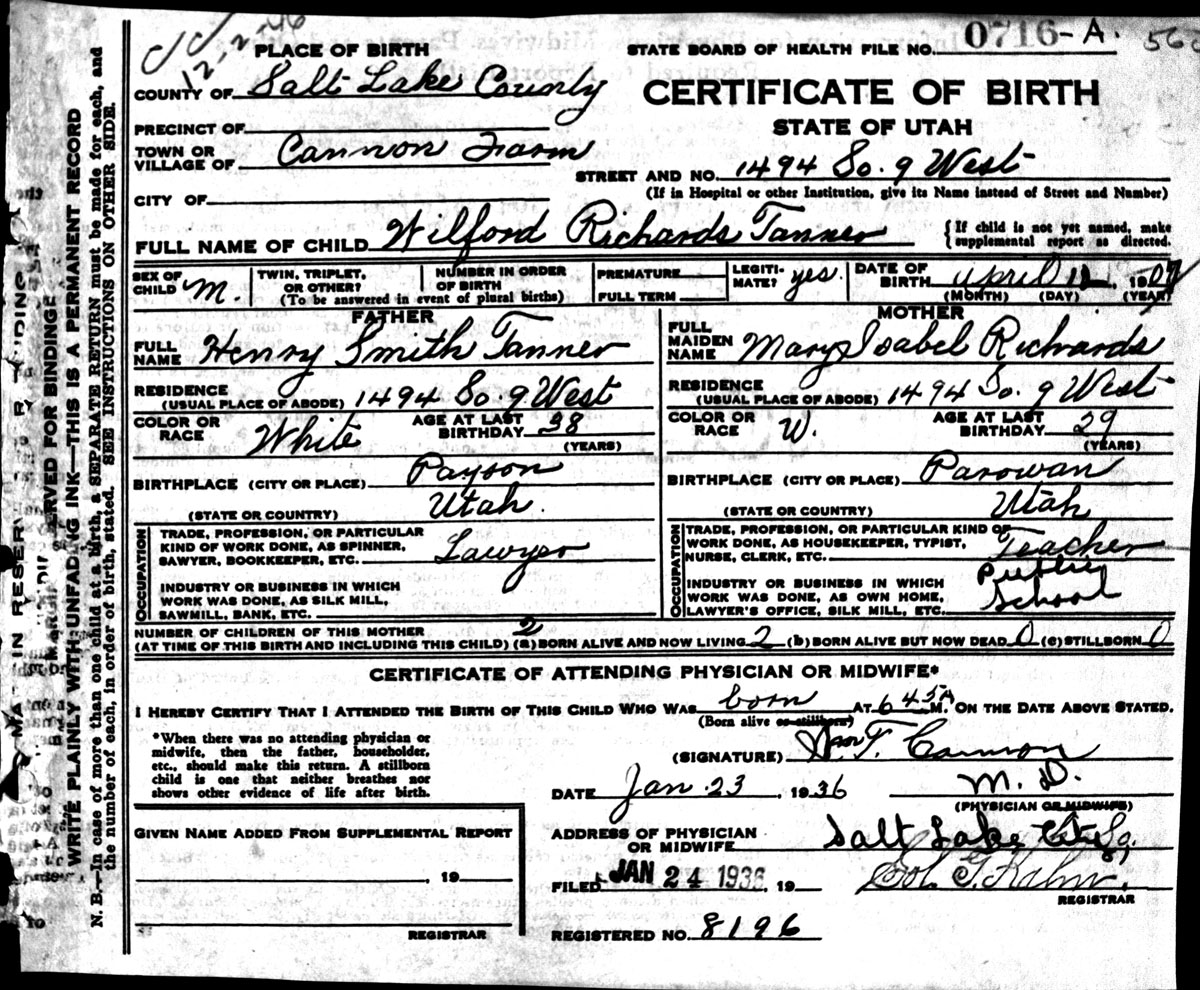 12-2-46
PLACE OF BIRTH
STATE BOARD OF HEALTH FILE NO. 0716-A.
COUNTY OF Salt Lake County
CERTIFICATE OF BIRTH
STATE OF UTAH
PRECINCT OF
TOWN OR
VILLAGE OF Cannon Farm
STREET AND NO. 1494 So. 9 West
(If in Hospital or other Institution, give its Name instead of Street and Number)
CITY OF
FULL NAME OF CHILD Wilford Richards Tanner
{If child is not yet named, make
supplemental report as directed.
SEX OF
CHILD M.
TWIN, TRIPLET,
OR OTHER?
NUMBER IN ORDER
OF BIRTH
(To be answered in event of plural births)
PREMATURE
FULL TERM
LEGITI-
MATE? yes.
DATE OF
BIRTH April 11, 1907
(MONTH) (DAY) (YEAR)
FATHER
FULL
NAME Henry Smith Tanner
RESIDENCE
(USUAL PLACE OF ABODE) 1494 So. 9 West
COLOR OR
RACE White
AGE AT LAST
BIRTHDAY 38
(YEARS)
BIRTHPLACE (CITY OR PLACE) Payson
Utah.
(STATE OR COUNTRY)
OCCUPATION
TRADE, PROFESSION, OR PARTICULAR
KIND OF WORK DONE, AS SPINNER,
SAWYER, BOOKKEEPER, ETC. Lawyer
INDUSTRY OR BUSINESS IN WHICH
WORK WAS DONE, AS SILK MILL,
SAWMILL, BANK, ETC.
MOTHER
FULL
MAIDEN
NAME Mary Isabel Richards
RESIDENCE
(USUAL PLACE OF ABODE) 1494 So. 9 West
COLOR OR
RACE W.
AGE AT LAST
BIRTHDAY 29
(YEARS)
BIRTHPLACE (CITY OR PLACE) Parowan
Utah
(STATE OR COUNTRY)
OCCUPATION
TRADE, PROFESSION, OR PARTICULAR KIND OF
WORK DONE, AS HOUSEKEEPER, TYPIST,
NURSE, CLERK, ETC. Teacher
INDUSTRY OR BUSINESS IN WHICH
WORK WAS DONE, AS OWN HOME,
LAWYER'S OFFICE, SILK MILL, ETC. Public School
NUMBER OF CHILDREN OF THIS MOTHER 2
(AT TIME OF THIS BIRTH AND INCLUDING THIS CHILD) (a) BORN ALIVE AND NOW LIVING 2 (b) BORN ALIVE BUT NOW DEAD 0 (c) STILLBORN 0
CERTIFICATE OF ATTENDING PHYSICIAN OR MIDWIFE*
I HEREBY CERTIFY THAT I ATTENDED THE BIRTH OF THIS CHILD WHO WAS born AT 6 45 A M. ON THE DATE ABOVE STATED.
(Born alive or stillborn)
*When there was no attending physician or
midwife, then the father, householder,
etc., should make this return. A stillborn
child is one that neither breathes nor
shows other evidence of life after birth.
(SIGNATURE) Wm T. Cannon
DATE Jan. 23, 1936 M. D.
(PHYSICIAN OR MIDWIFE)
GIVEN NAME ADDED FROM SUPPLEMENTAL REPORT
, 19
REGISTRAR
ADDRESS OF PHYSICIAN
OR MIDWIFE Salt Lake City
FILED JAN 24 1936, 19
Sol. G. Kahn.
REGISTRAR
REGISTERED NO. 8196
WRITE PLAINLY WITH UNFADING INK—THIS IS A PERMANENT RECORD
N. B.—In case of more than one child at a birth, a SEPARATE RETURN must be made for each, and
the number of each, in order of birth, stated. SEE INSTRUCTIONS ON OTHER SIDE.